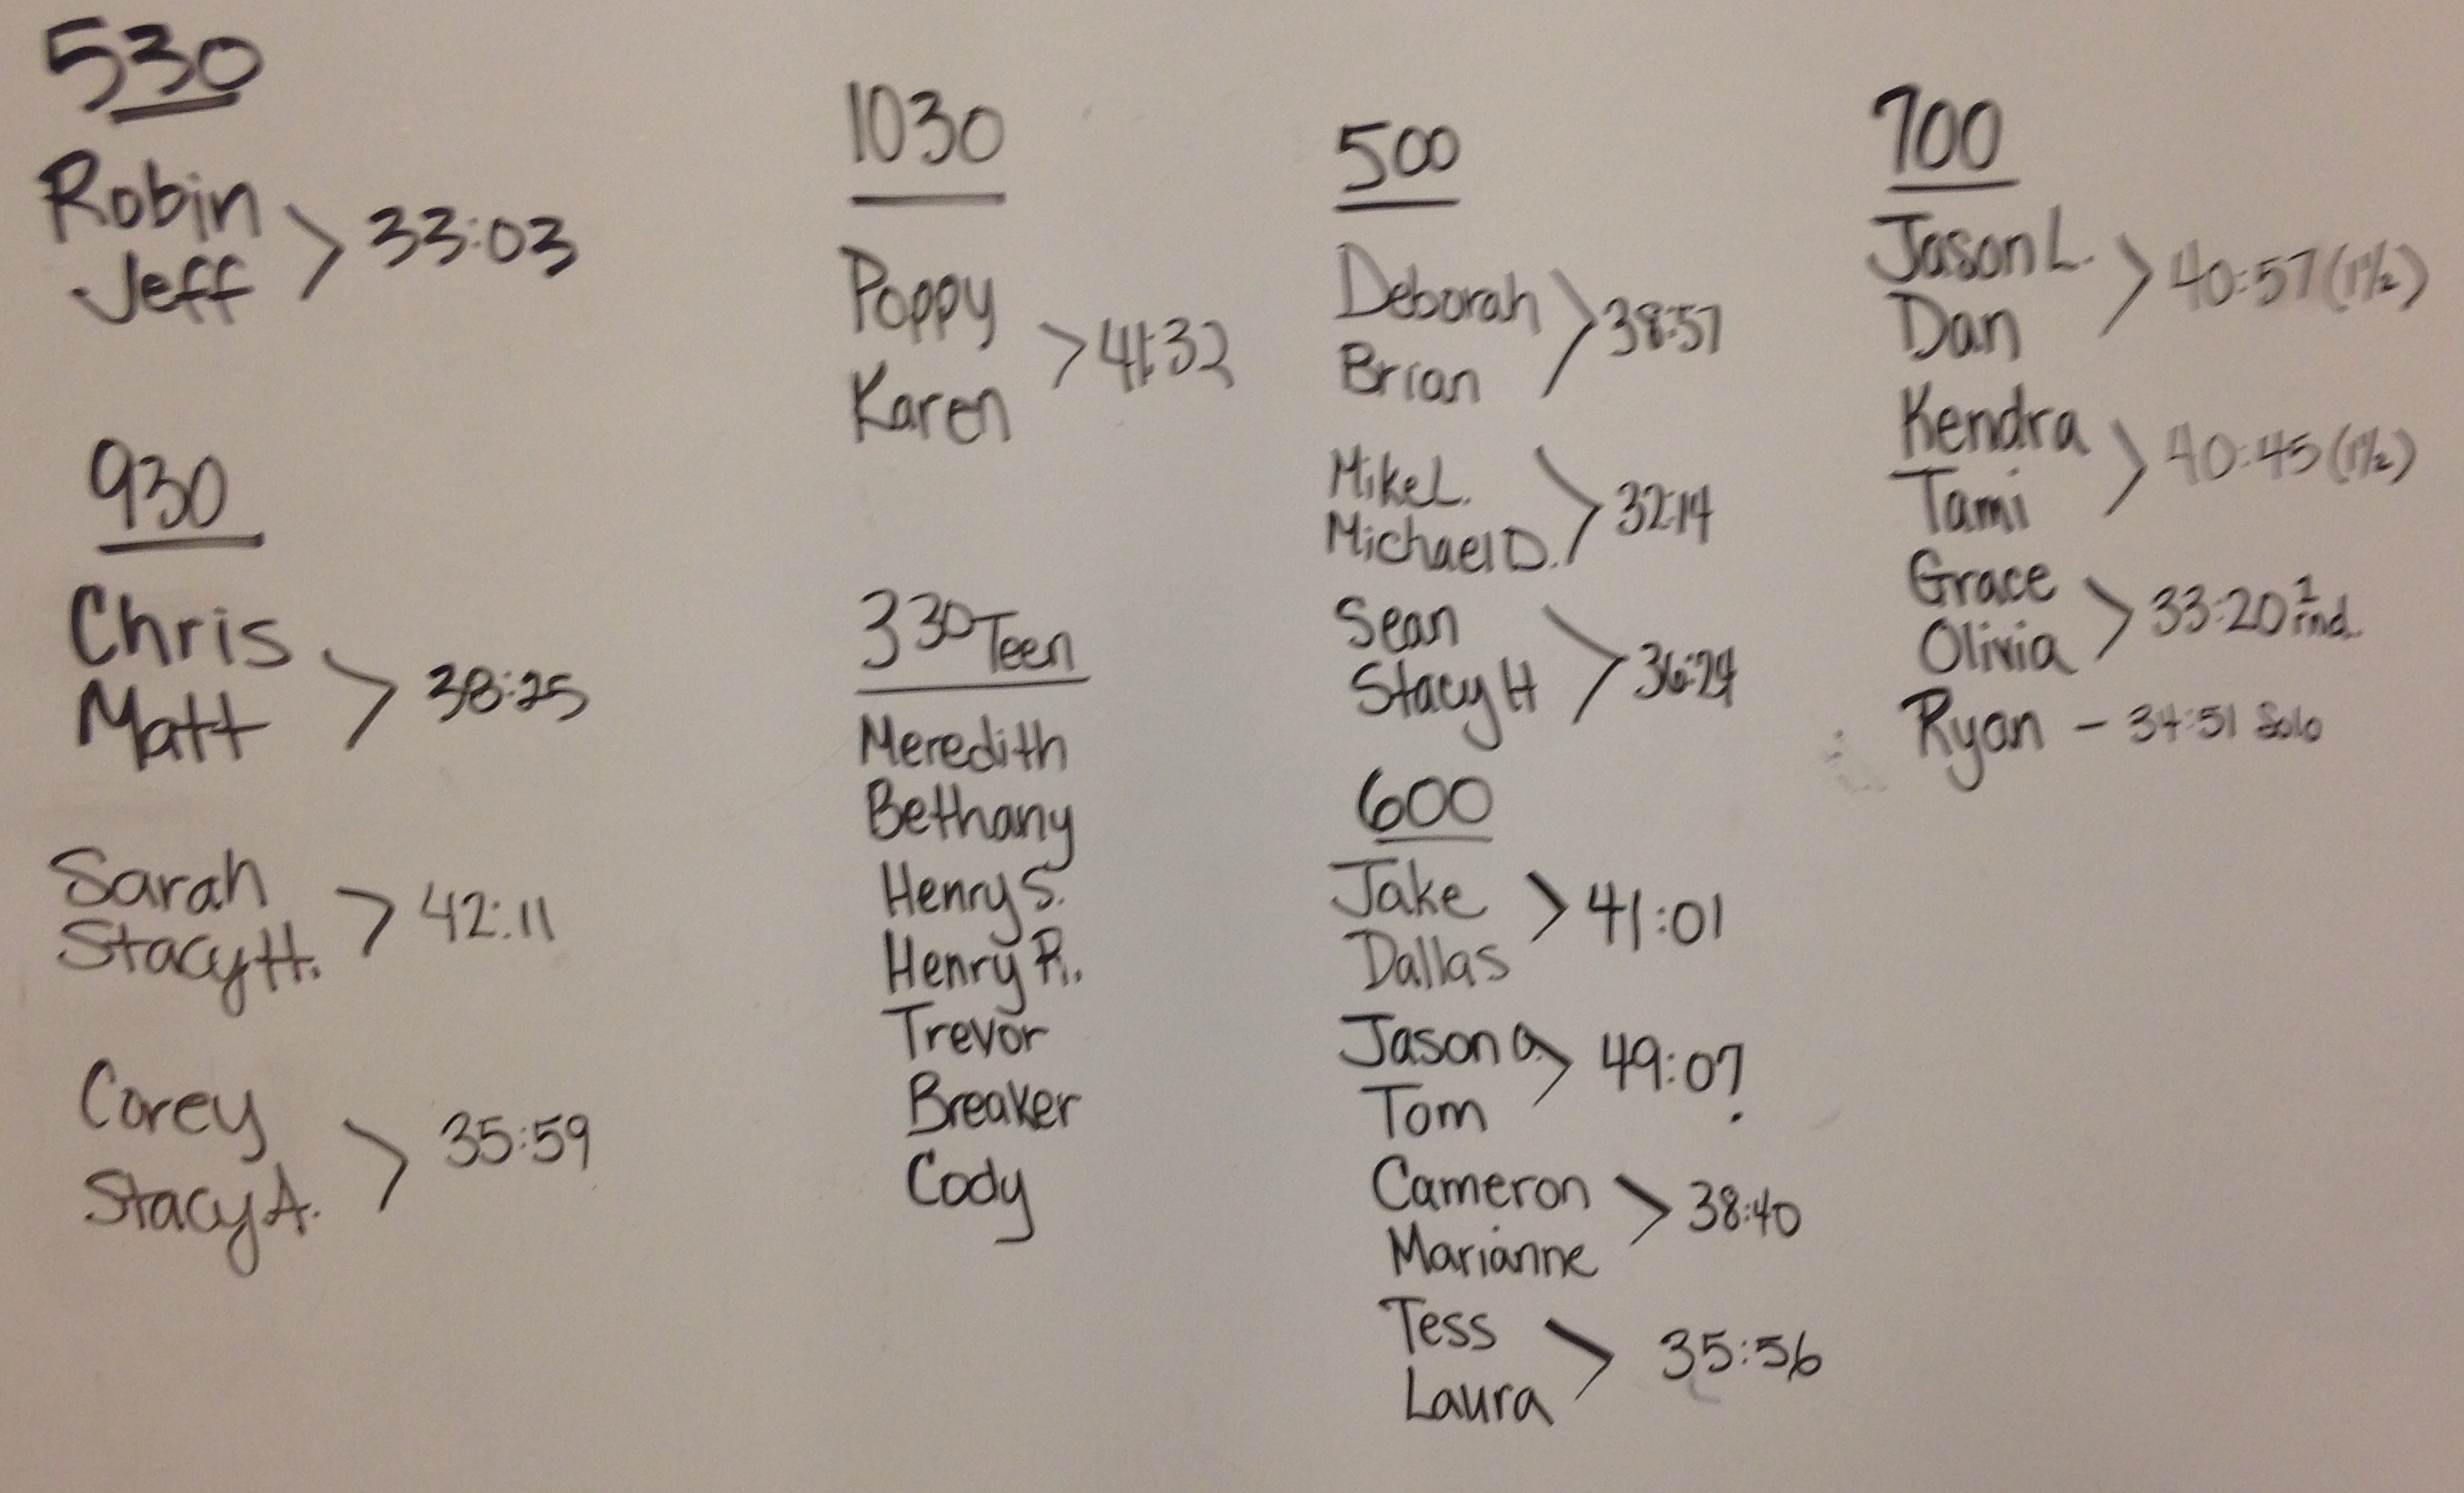 530
Robin
Jeff > 33:03
930
Chris
Matt > 38:25
Sarah
Stacy H. > 42:11
Corey
Stacy A. > 35:59
1030
Poppy
Karen > 41:32
330 Teen
Meredith
Bethany
Henry S.
Henry R.
Trevor
Breaker
Cody
500
Deborah
Brian > 38:57
Mike L.
Michael D. > 32:14
Sean
Stacy H > 36:24
600
Jake
Dallas > 41:01
Jason G. > 49:07
Tom
Cameron
Marianne > 38:40
Tess
Laura > 35:56
700
Jason L.
Dan > 40:57 (1½)
Kendra
Tami > 40:45 (1½)
Grace
Olivia > 33:20 1 rnd.
Ryan - 34:51 Solo